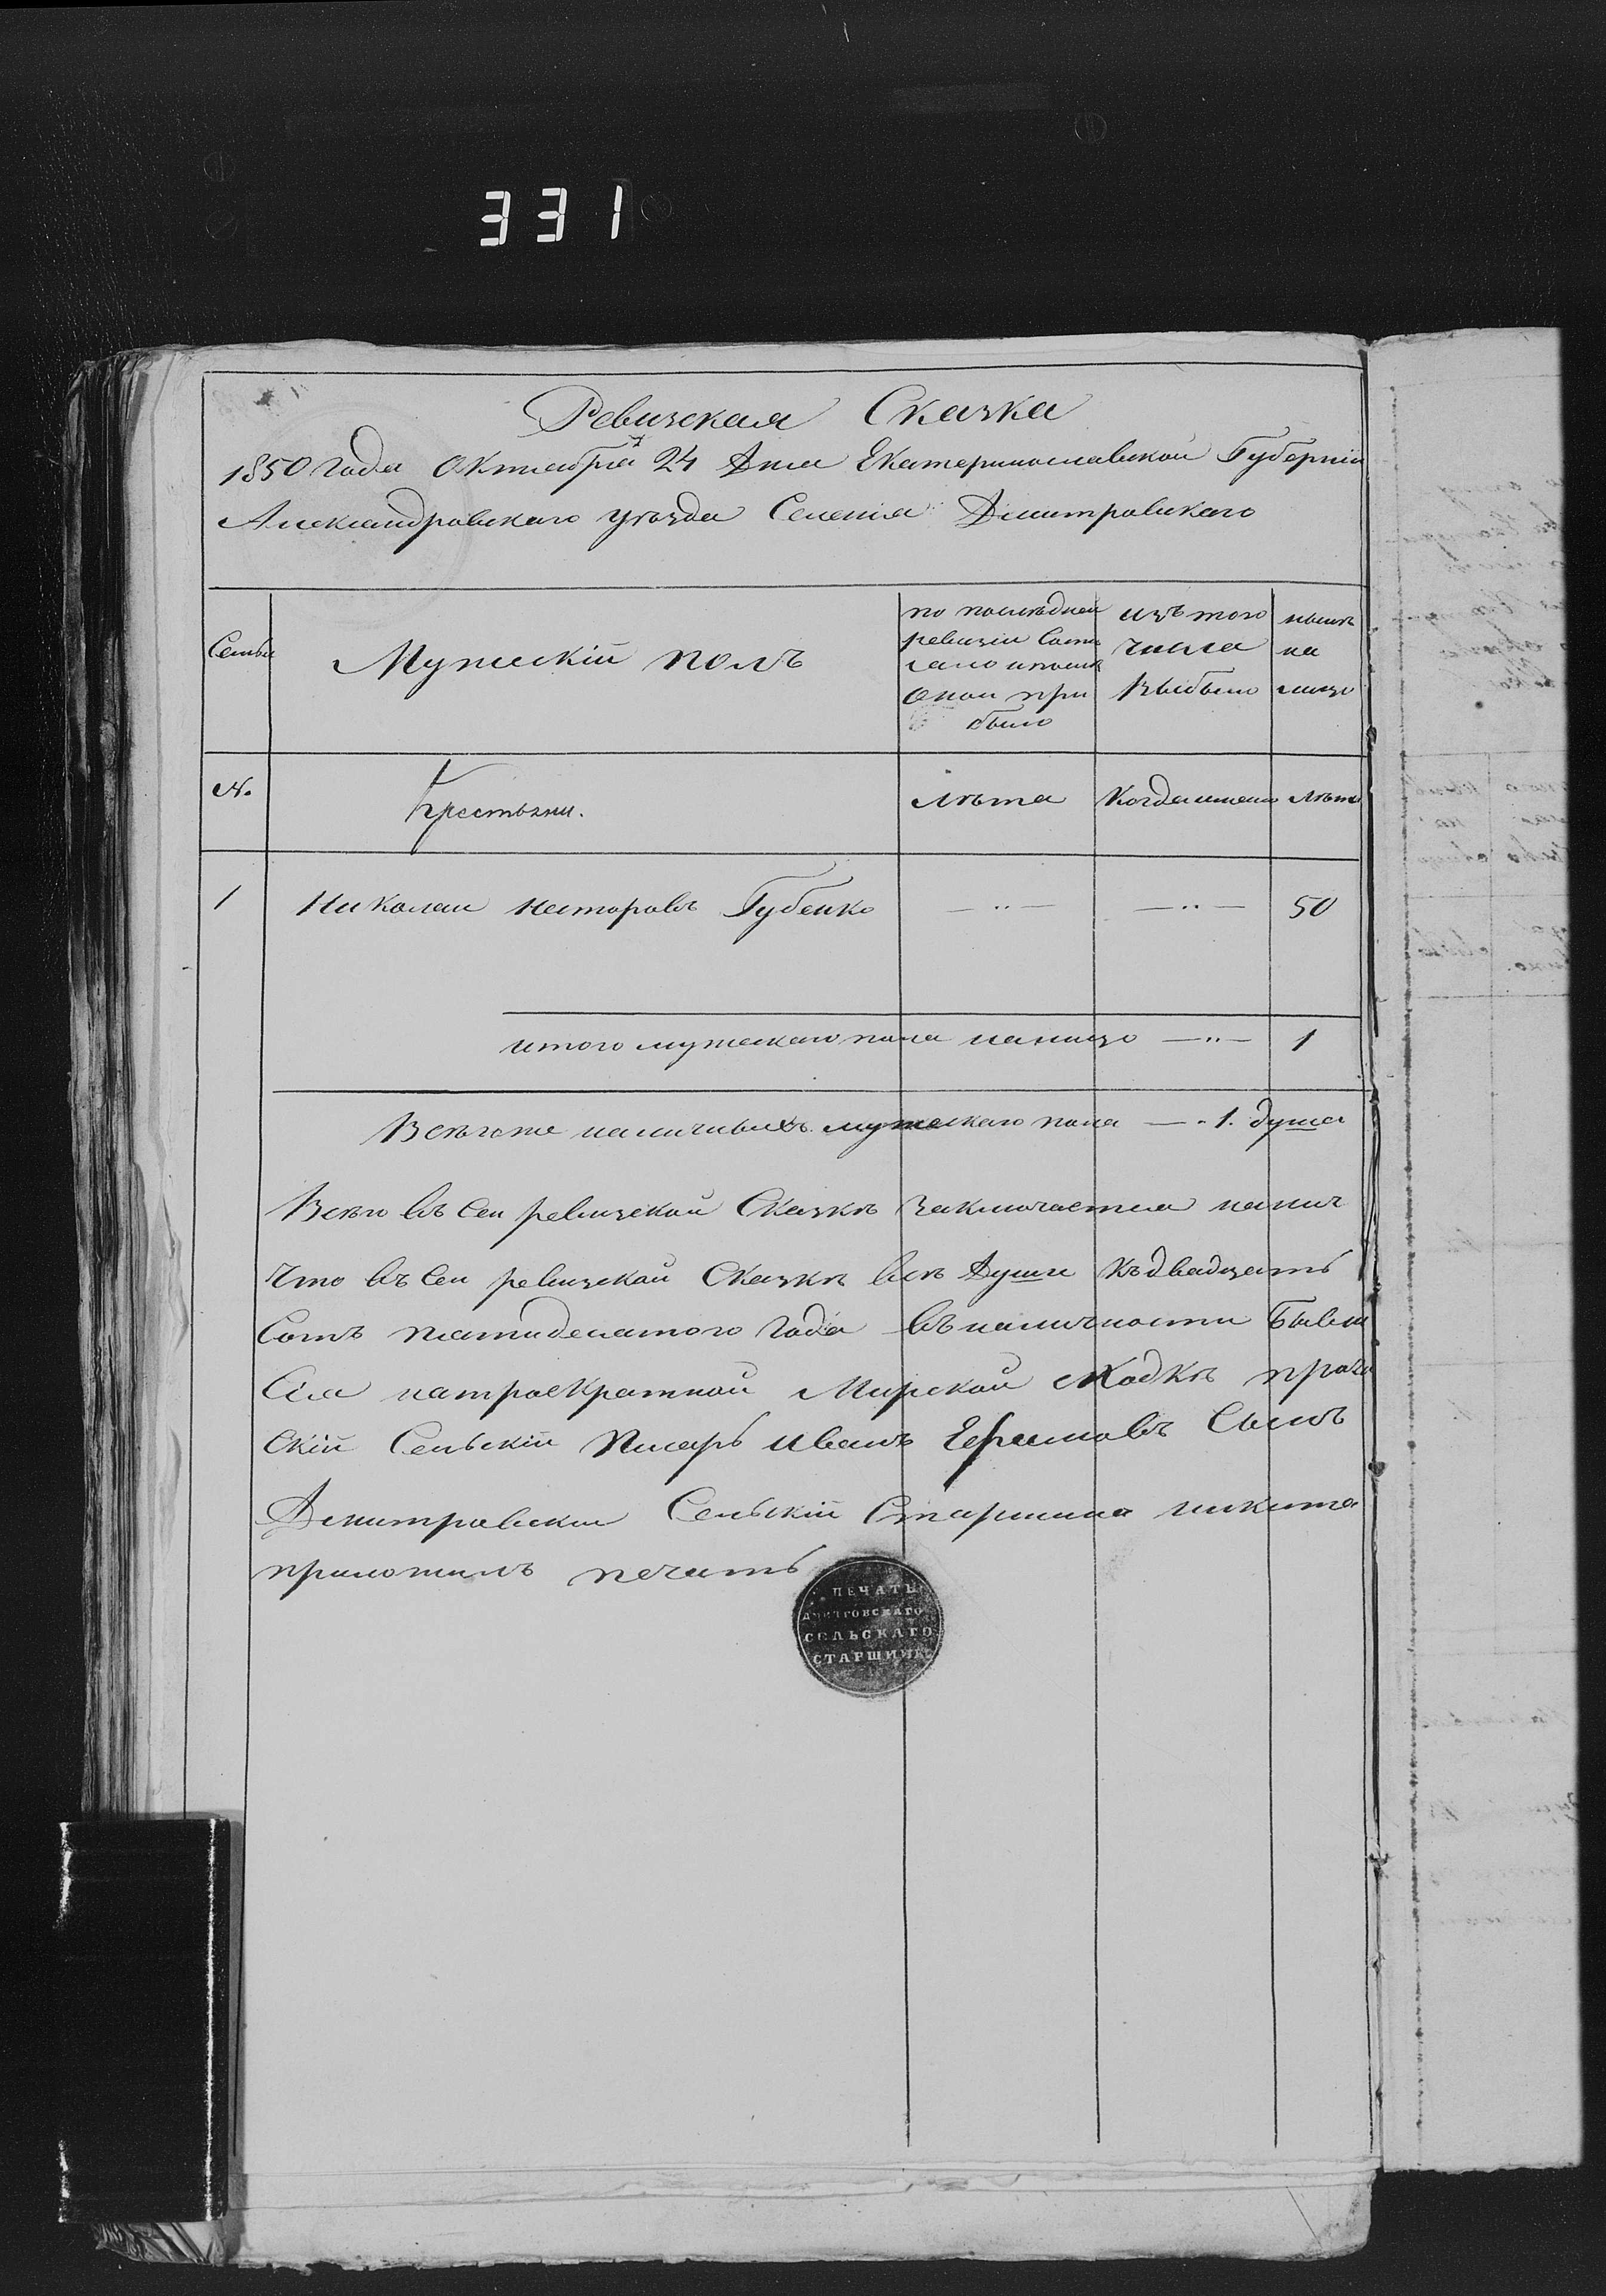 331
Ревизская Сказка
1850 года Октября 24 Дня Екатеринославской Губерніи
Александровскаго уѣзда Селенія Дмитровскаго
Семьи
Мужескій полъ
по последней
ревизіи Состо
яло и после
Оной при
было
изъ того
числа
Выбыло
ныне
на
лицо
№.
Крестьяни.
Лѣта
Когда именно
Лѣта
1
Николаи Несторовъ Губенко
— „ —
— „ —
50
итого мужескаго пола налицо — „ —
1
Всѣго же наличныхъ мужескаго пола — „ 1. душа
Всѣго въ Сеи ревизской Сказкѣ Заключается налич
Что въ Сеи ревизской Сказкѣ всѣ Души къ двадцать
Сотъ пятидесятого года въ наличности Бывш
Сія на троекратной Мирской Сходкѣ проч
Скій Сельскій Писарь Иванъ Ефимовъ Сынъ
Дмитровскіи Сельскій Старшина никита
приложилъ печать
ПЕЧАТЬ
ДМИТРОВСКАГО
СЕЛЬСКАГО
СТАРШИНЫ